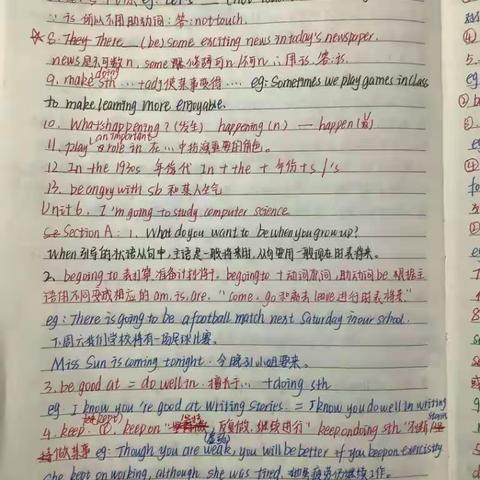 ∵ 前 不用助动词 ∴ 答: not touch.
※8. They There ___ (be) some exciting news in today's newspaper.
news是不可数n, some 可n 不可n ∴ 用is 答:is.
9. make sth doing …+adj 使某事变得…… eg: Sometimes we play games in class
to make learning more enjoyable.
10. What's happening? (发生) happening (n) — happen (v)
11. play an important a role in 在…中扮演重要的角色。
12 In the 1930s 年代 In + the + 年份 + s / 's
13. be angry with sb 和某人生气
Unit 6. I'm going to study computer science
Se Section A: 1. What do you want to be when you grow up?
When 引导的状语从句中,主语是一般将来时,从句要用一般现在时表将来。
2. be going to 表打算,准备计划将于. be going to + 动词原词, 助动词be 根据主
语的不同变成相应的am, is, are. "come, go 和离去 leave 进行时表将来."
eg: There is going to be a football match next Saturday in our school.
下周六我们学校将有一场足球比赛.
Miss Sun is coming tonight. 今晚孙小姐要来。
3. be good at = do well in. 擅长于… + doing sth
eg I know you're good at writing stories. = I know you do well in writing
stories
4. keep (kept) ①, keep on " 反复做, 继续进行" keep on doing sth "不断
做某事 eg: Though you are weak, you will be better if you keep on exercising
(虚弱)
She kept on working, although she was tired. 她 疲劳仍继续工作。